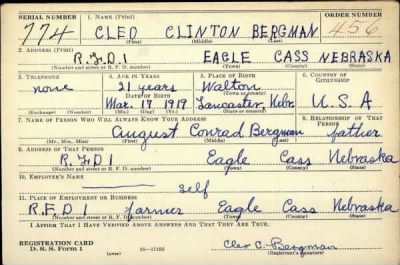 SERIAL NUMBER 1. NAME (Print) ORDER NUMBER
774 CLEO CLINTON BERGMAN 456
(First) (Middle) (Last)
2. ADDRESS (Print)
R.F.D.1 EAGLE CASS NEBRASKA
(Number and street or R. F. D. number) (Town) (County) (State)
3. TELEPHONE 4. AGE IN YEARS 5. PLACE OF BIRTH 6. COUNTRY OF CITIZENSHIP
none 21 years Walton
DATE OF BIRTH (Town or county)
Mar. 17 1919 Lancaster, Nebr. U.S.A
(Exchange) (Number) (Mo.) (Day) (Yr.) (State or country)
7. NAME OF PERSON WHO WILL ALWAYS KNOW YOUR ADDRESS 8. RELATIONSHIP OF THAT PERSON
August Conrad Bergman father
(Mr., Mrs., Miss) (First) (Middle) (Last)
9. ADDRESS OF THAT PERSON
R.F.D.1 Eagle Cass Nebraska
(Number and street or R. F. D. number) (Town) (County) (State)
10. EMPLOYER'S NAME
self
11. PLACE OF EMPLOYMENT OR BUSINESS
R.F.D.1 farmer Eagle Cass Nebraska
(Number and street or R. F. D. number) (Town) (County) (State)
I AFFIRM THAT I HAVE VERIFIED ABOVE ANSWERS AND THAT THEY ARE TRUE.
REGISTRATION CARD
D. S. S. Form 1 (over) 16—17105 Cleo C. Bergman
(Registrant's signature)